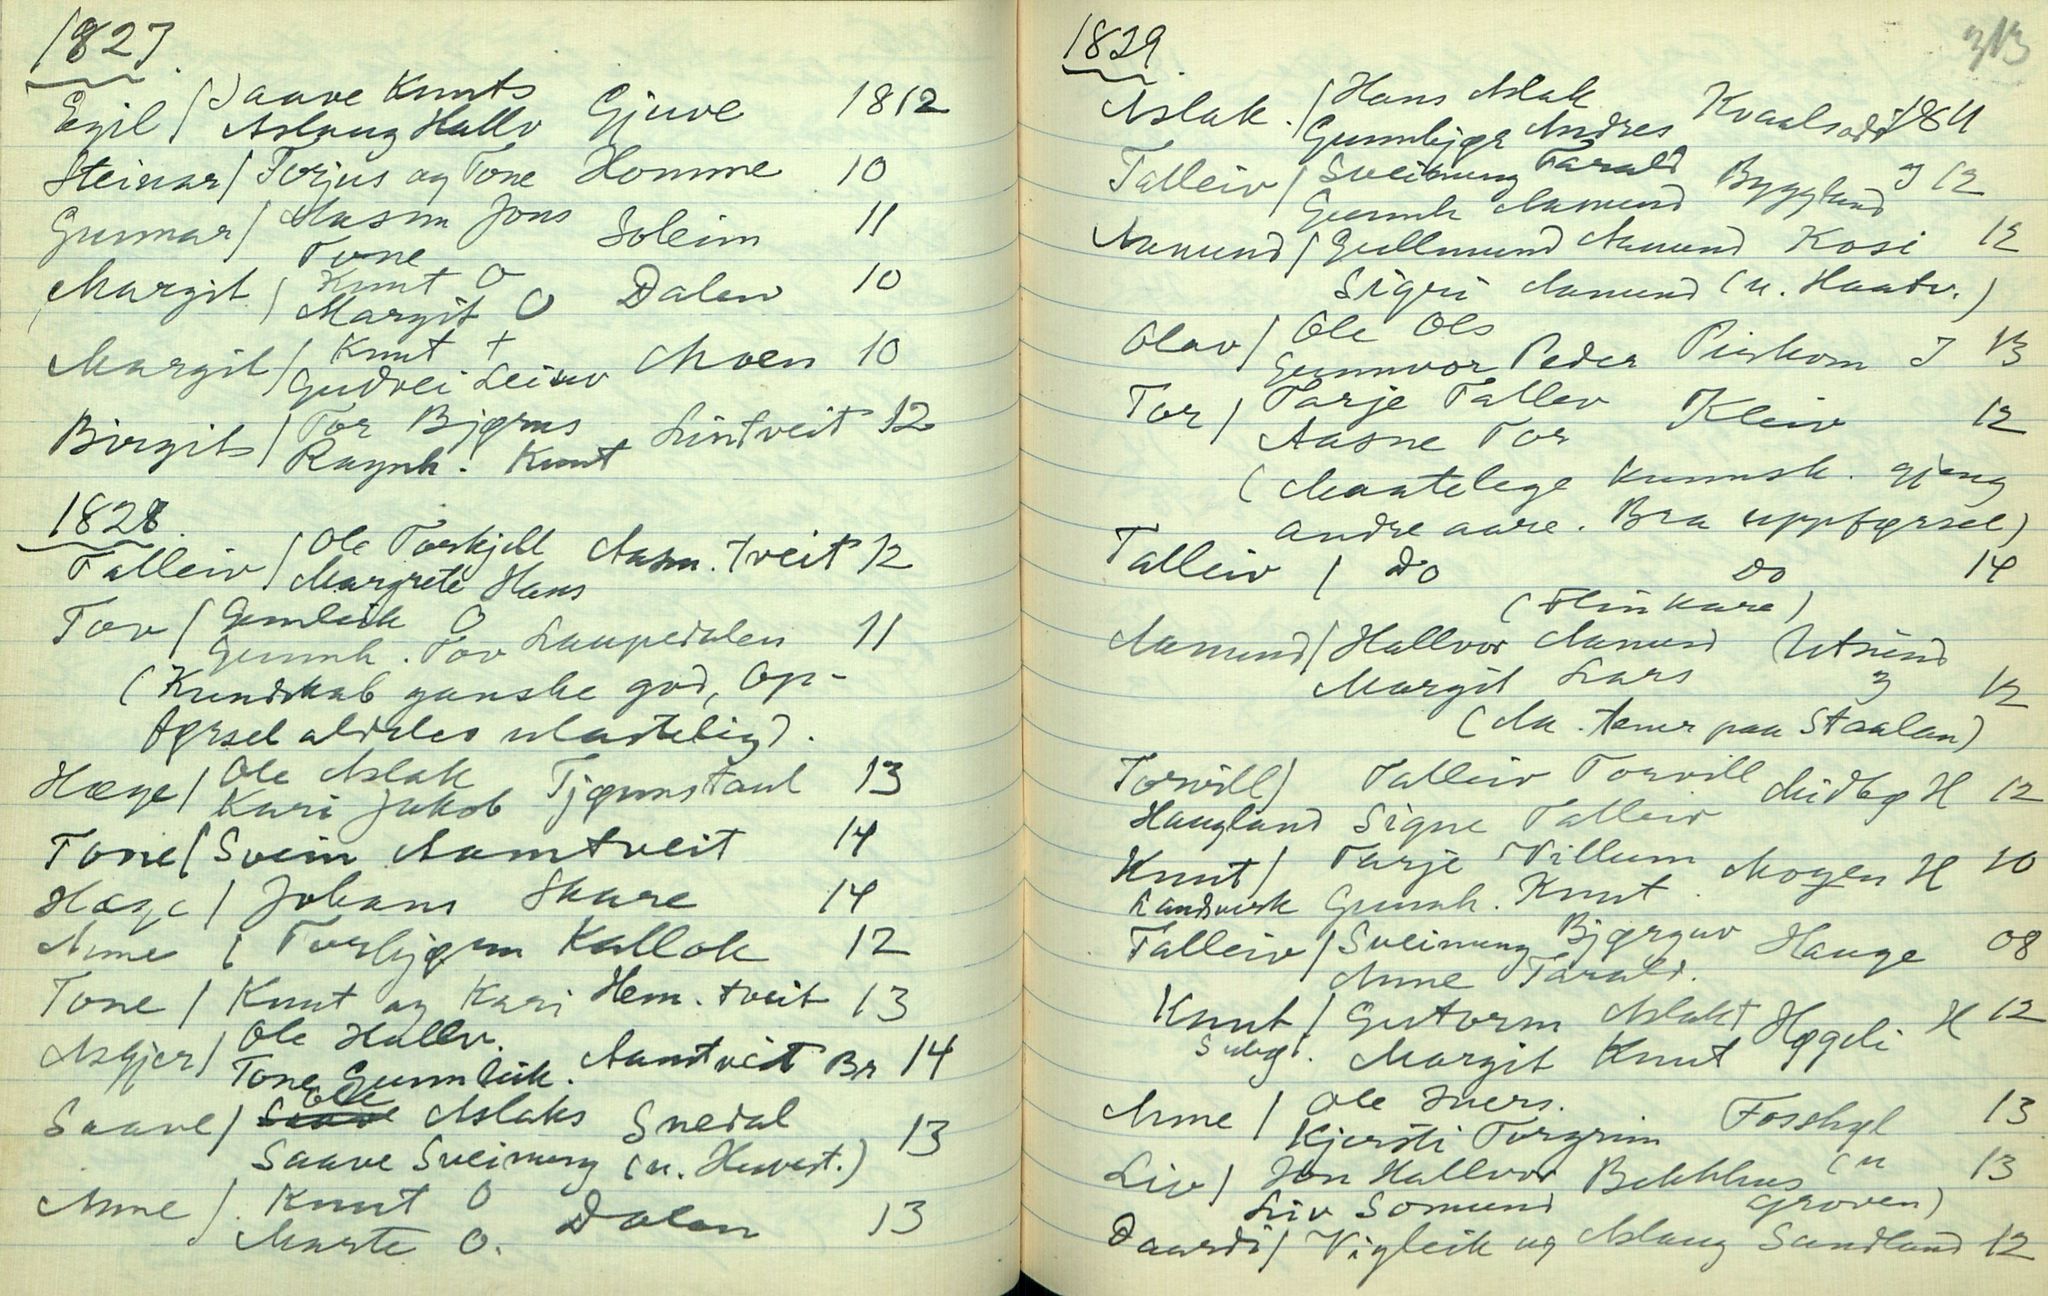 1827.
Egil / Saave Knuts Gjuve 1812
Aslaug Hallv
Steinar / Torjus og Tone Homme 10
Gunnar / Aasm Jons Soleim 11
Tone
Margit / Knut O Dalen 10
Margit O
Margit / Knut + Moen 10
Gudvei Leiuv
Birgit / Tor Bjørns Lintveit 12
Ragnh. Knut
1828.
Talleiv / Ole Torkjell Aasm. tveit 12
Margrete Hans
Tov / Gunleik O Laupedalen 11
Gunnh. Tov
(Kundskab ganske god, Op-
førsel aldeles ulastelig).
Hæge / Ole Aslak Tjønnstaul 13
Kari Jakob
Tone / Svein Aamtveit 14
Hæge / Johans Skare 14
Anne / Torbjørn Kallok 12
Tone / Knut og Kari Hem. tveit 13
Asbjør / Ole Hallv. Aamtveit Br 14
Tone Gunnleik.
Saave / Ole Aslaks Snedal 13
Saave Sveinung (u. Huvest.)
Anne / Knut O Dalen 13
Marte O.
313
1829.
Aslak / Hans Aslak Kvaalsodd 1811
Gunnbjør Andres
Talleiv / Sveinung Tarald Byggland J 12
Gunnh Aamund
Aamund / Gullmund Aamund Kosi 12
Sigri Aamund (u. Haatv.)
Olav / Ole Ols
Gunnvor Peder Pinkom J 13
Tor / Tarje Tallev Kleiv 12
Aasne Tor
(Maatelege kunnsk. gjeng
andre aare. Bra uppførsel)
Talleiv / Do Do 14
(Flin kare)
Aamund / Hallvor Aamund Utsund
Margit Lars J 12
(Aa. tener paa Staalan)
Torvill / Talleiv Torvill Midbø H 12
Haugland Signe Talleiv
Knut / Tarje Villum Mogen H 10
Landverk Gunnh. Knut
Talleiv / Sveinung Bjørguv Hauge 08
Anne Tarald.
Knut / Gutorm Aslakt Høgeli H 12
Margit Knut
Anne / Ole Ivers. Fosshyl 13
Kjersti Torgrim
Liv / Jon Hallvor Bekkhus (u 13
Liv Somund Groven)
Daardi / Vigleik og Aslaug Sundland 12